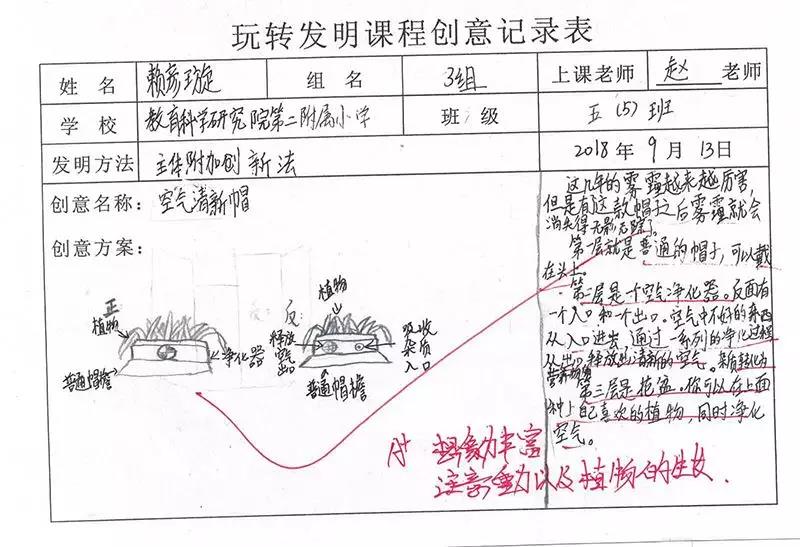 玩转发明课程创意记录表
姓名 赖彦璇 组名 3组 上课老师 赵 老师
学校 教育科学研究院第二附属小学 班级 五(5)班
发明方法 主体附加创新法 2018年9月13日
创意名称: 空气清新帽
创意方案:
正
植物
净化器
普通帽檐
植物
反:
释放
空气
出口
吸收
杂质
入口
普通帽檐
这几年的雾霾越来越厉害,
但是有这款帽子之后雾霾就会
消失得无影无踪了。
第一层就是普通的帽子,可以戴
在头上。
第二层是个空气净化器。反面有
一个入口和一个出口。空气中不好的东西
从入口进去,通过一系列的净化过程
从出口释放出清新的空气。杂质转化为
营养物质
第三层是花盆。你可以在上面
种上自己喜欢的植物,同时净化
空气。
A+ 想象力丰富
注意重力以及植物的生长.